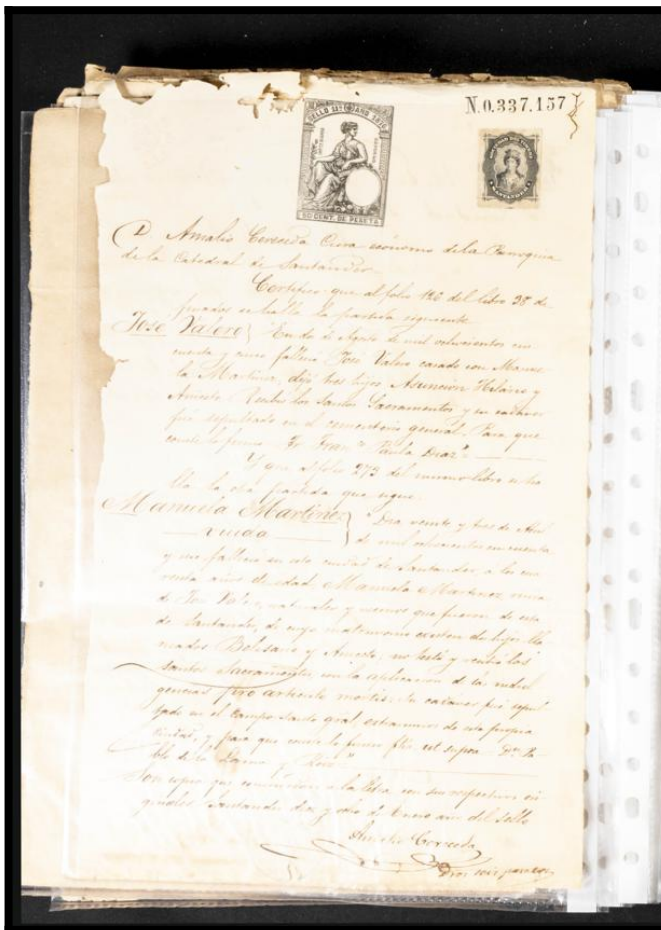 N.0.337.157
SELLO 11º AÑO 187
50 CENT. DE PESETA
D Amalio Cereceda Cura ecónomo de la Parroquia
de la Catedral de Santander.
Certifico que al folio 126 del libro 28 de
finados se halla la partida siguiente
José Valero } En de Agosto de mil ochocientos cin
cuenta y falleció José Valero casado con Manue
la Martinez, dejó tres hijos Asunción Hilario y
Aniceto. Recibió los Santos Sacramentos y su cadaver
fue sepultado en el cementerio general. Para que
conste lo firmo. Fr. Franco Paula Diaz"
Y que al folio 273 del mismo libro se ha
lla la otra partida que sigue.
Manuela Martinez } "Dia veinte y tres de Abril
viuda de mil ochocientos cincuenta
y falleció en esta ciudad de Santander, a los cua
renta años de edad Manuela Martinez viuda
de José Valero, naturales y vecinos que fueron de esta
de Santander, de cuyo matrimonio existen dos hijos lla
mados y Aniceto: no testó y recibió los
santos Sacramentos con la aplicación de las indul
gencias pro articulo mortis. Su cadaver fué sepul
tado en el Campo Santo gral extramuros de esta propia
ciudad, y para que conste lo firmo fha ut supra Dn Pa
blo de la y
Son copias que convienen a la letra con sus respectivos ori
ginales Santander diez y ocho de Enero año del sello
Amalio Cereceda
Dros seis pesetas